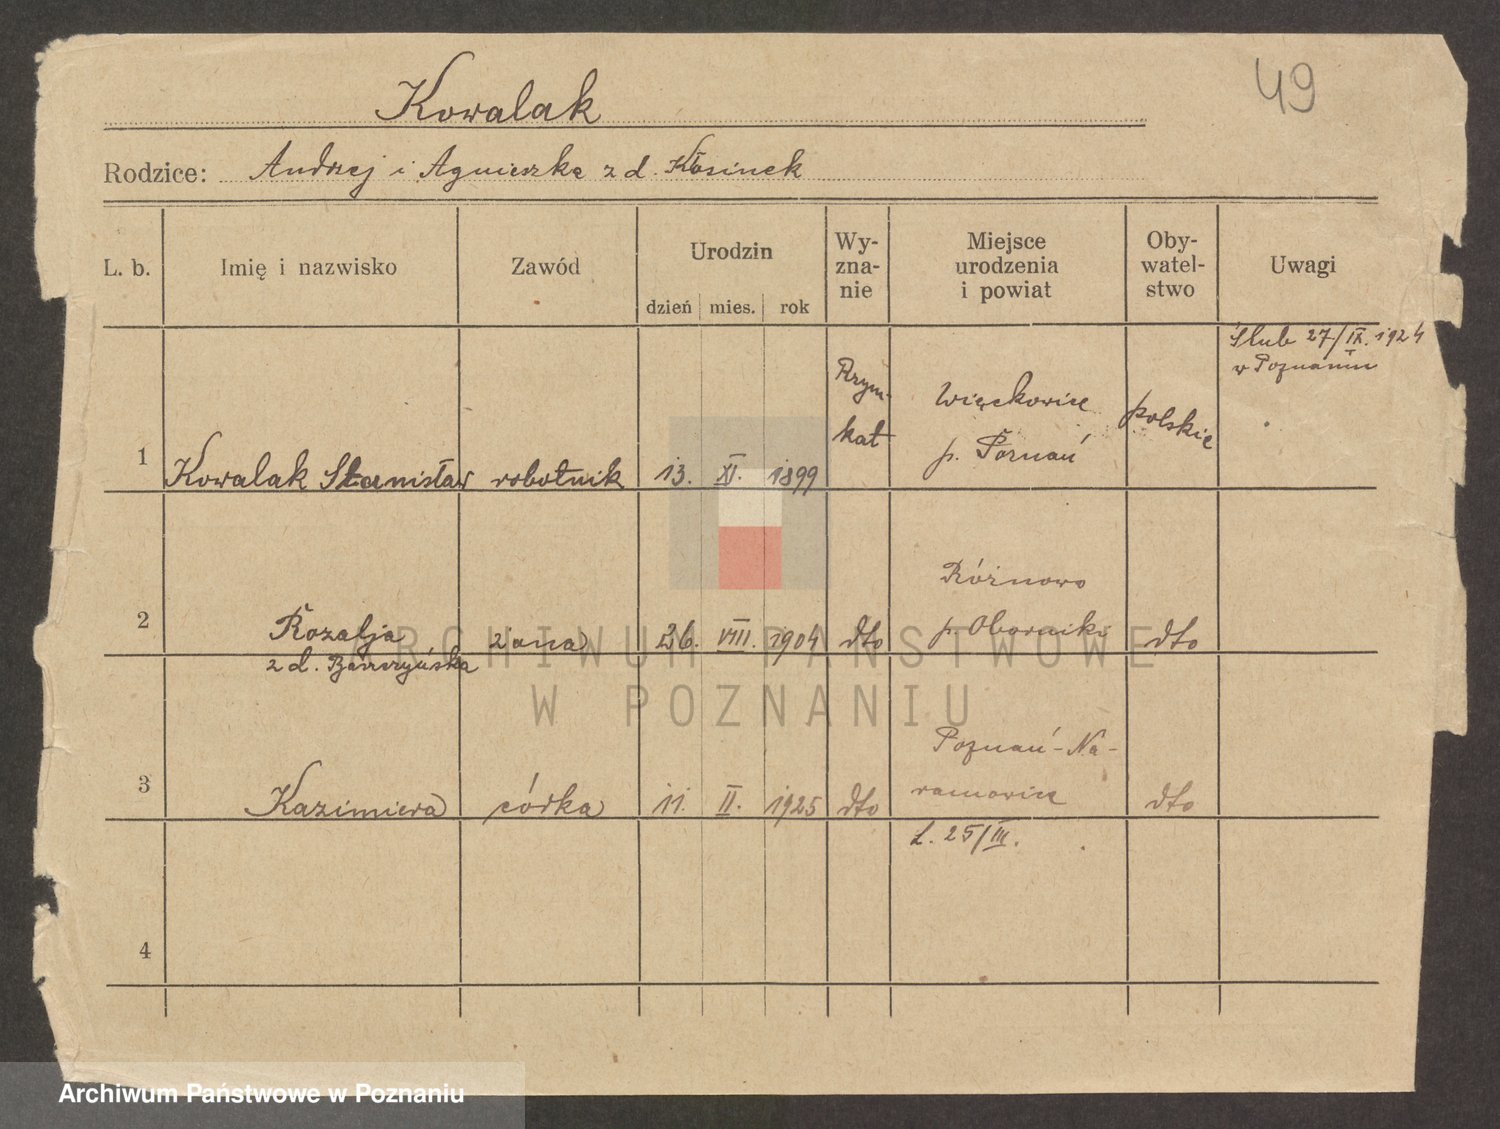 49
Kowalak
Rodzice: Andrzej i Agnieszka z d. Kłosinek
L. b.
Imię i nazwisko
Zawód
Urodzin
dzień mies. rok
Wy-
zna-
nie
Miejsce
urodzenia
i powiat
Oby-
watel-
stwo
Uwagi
1
Kowalak Stanisław
robotnik
13. XI. 1899
Rzym.
kat
Więckowice
p. Poznań
polskie
Ślub 27/IX. 1924
w Poznaniu
2
Rozalja
z d.
żona
26. VIII. 1904
dto
Różnowo
p. Oborniki
dto
3
Kazimiera
córka
11. II. 1925
dto
Poznań-Na-
ramowice
L. 25/III.
dto
4
ARCHIWUM PAŃSTWOWE
W POZNANIU
Archiwum Państwowe w Poznaniu